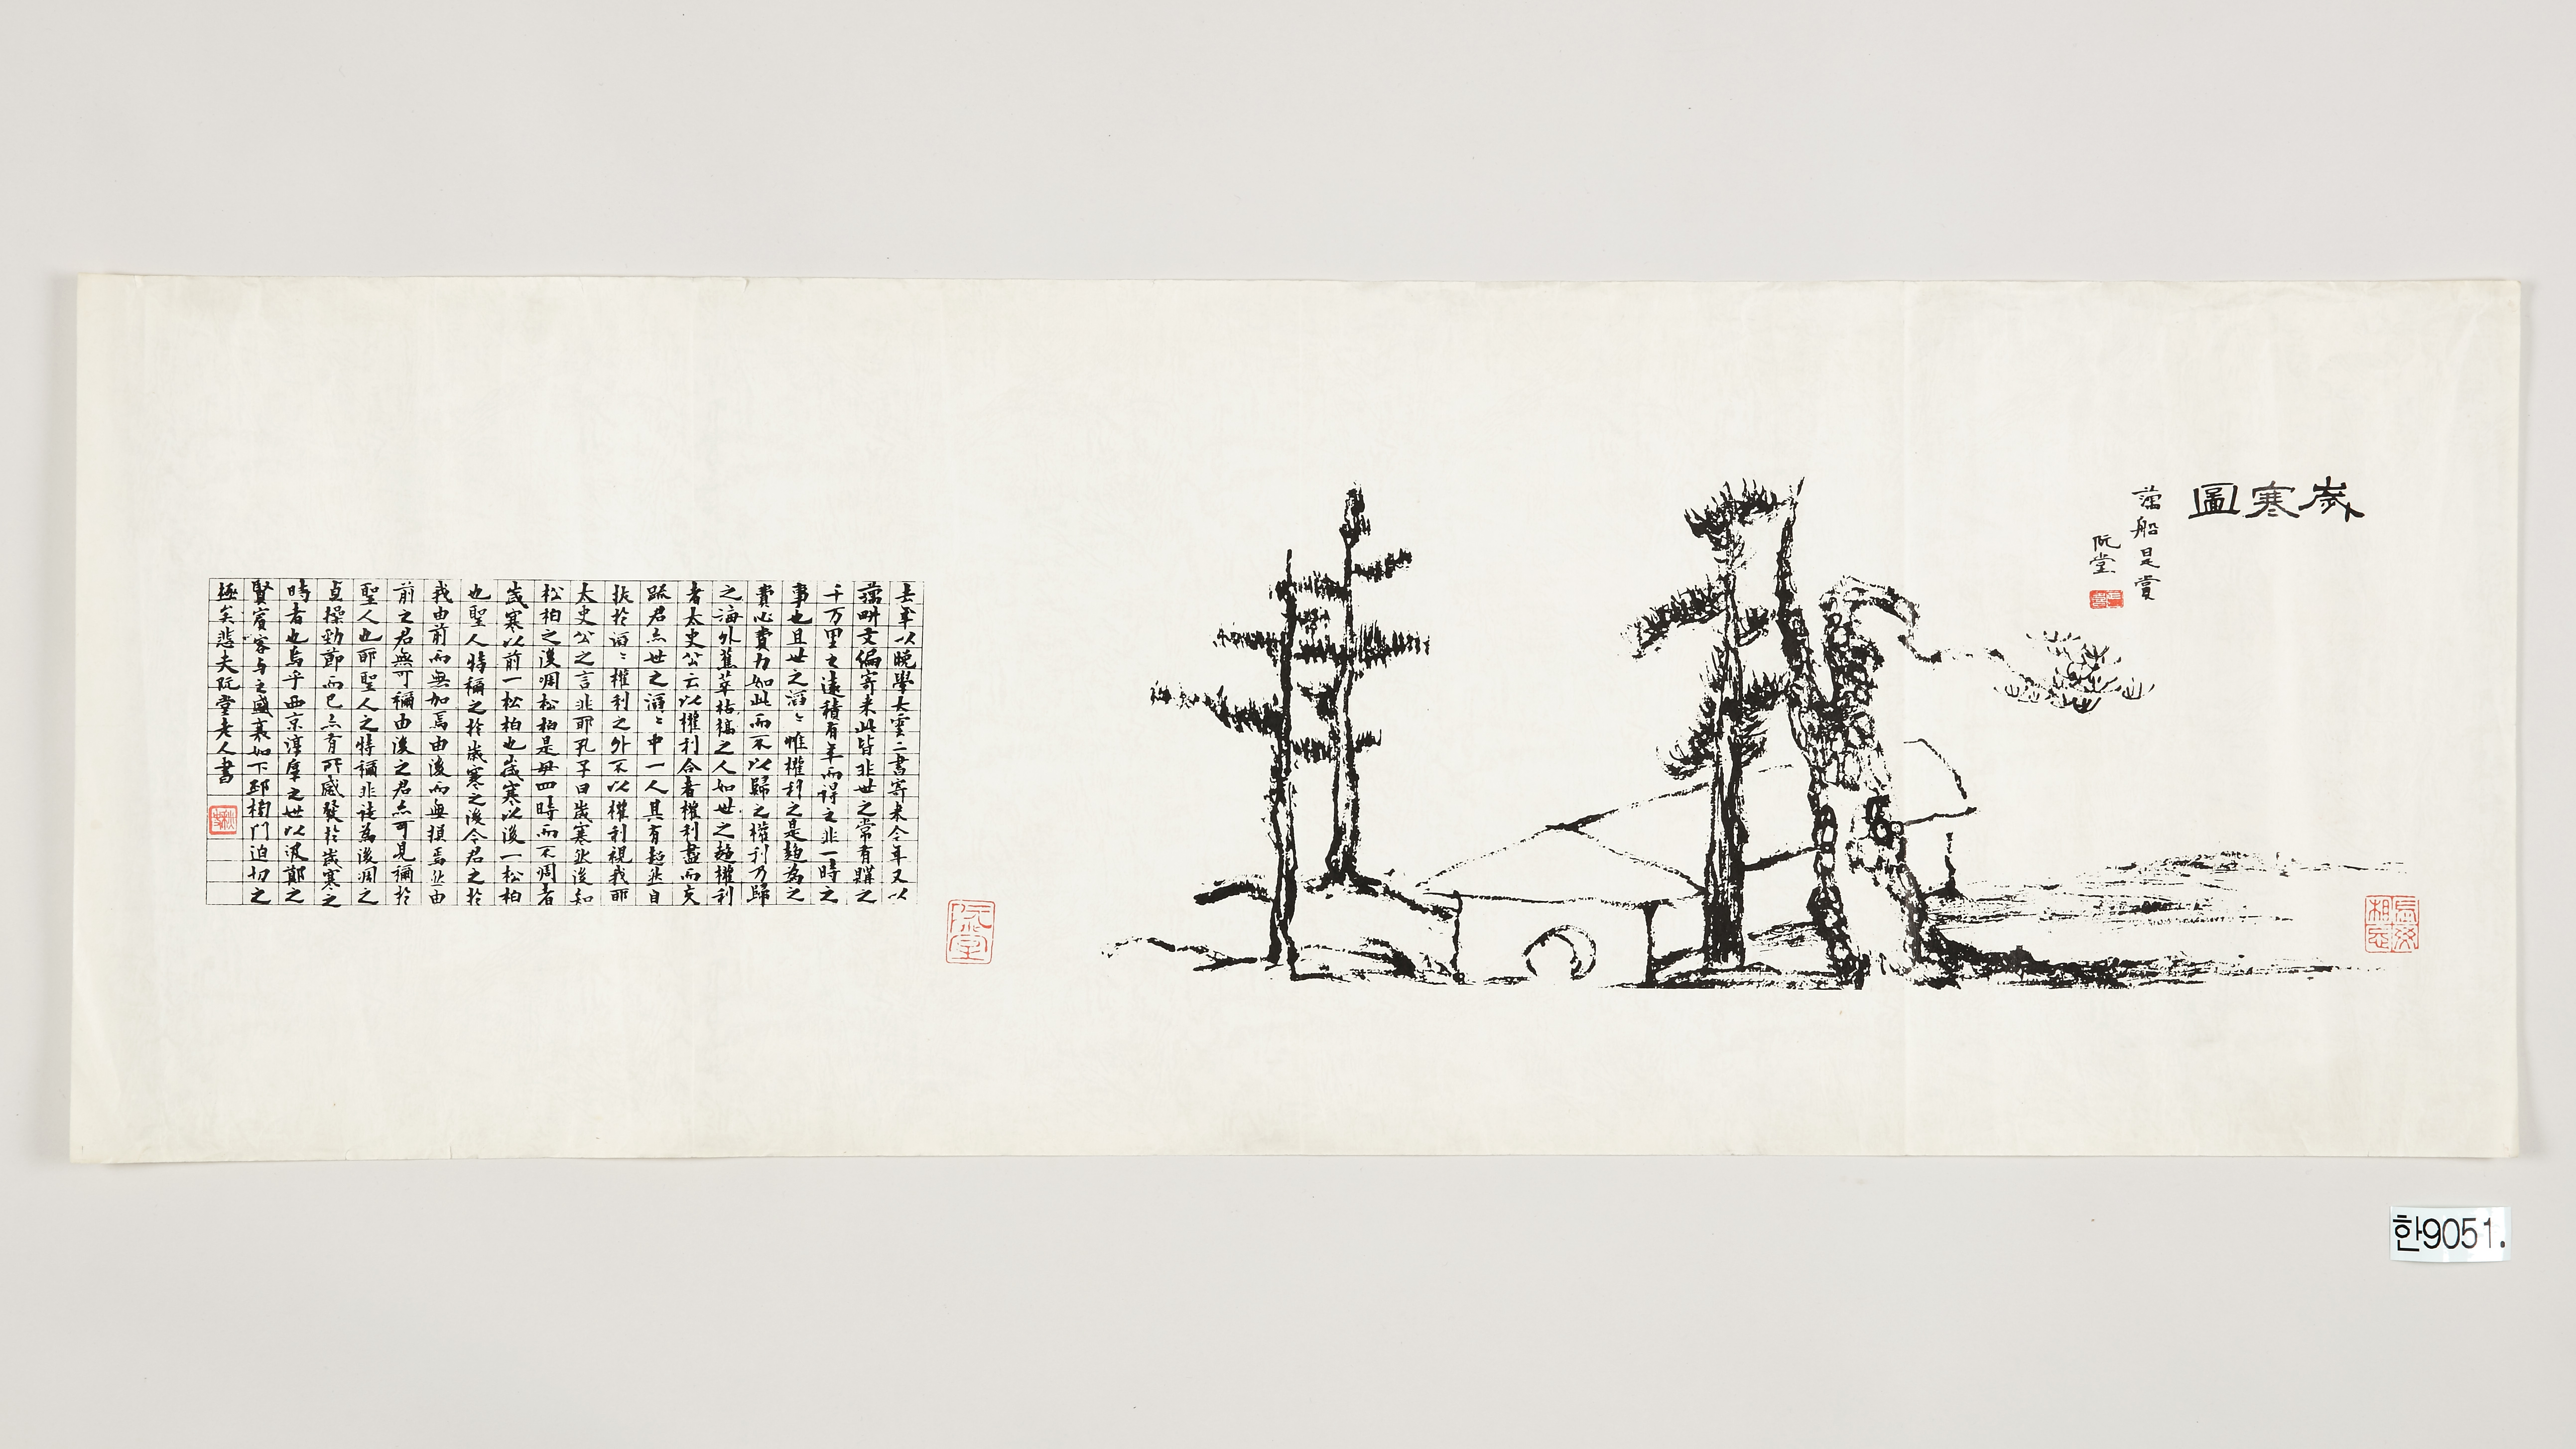 歲寒圖
藕船是賞
阮堂
正喜
長毋相忘
阮堂
去年以晚學大雲二書寄來今年又以
藕畊文偏寄来此皆非世之常有購之
千万里之遠積有年而得之非一時之
事也且世之滔〻惟權利之是趨為之
費心費力如此而不以歸之權利乃歸
之海外蕉萃枯稿之人如世之趨權利
者太史公云以權利合者權利盡而交
踈君亦世之滔〻中一人其有超然自
拔於滔〻權利之外不以權利視我耶
太史公之言非耶孔子曰歲寒然後知
松柏之後凋松柏是毋四時而不凋者
歲寒以前一松柏也歲寒以後一松柏
也聖人特稱之於歲寒之後今君之於
我由前而無加焉由後而無損焉然由
前之君無可稱由後之君亦可見稱於
聖人也耶聖人之特稱非徒為後凋之
貞操勁節而已亦有所感發於歲寒之
時者也烏乎西京淳厚之世以汲鄭之
賢賓客与之盛衰如下邳榜門迫切之
極矣悲夫阮堂老人書
秋史
한9051.